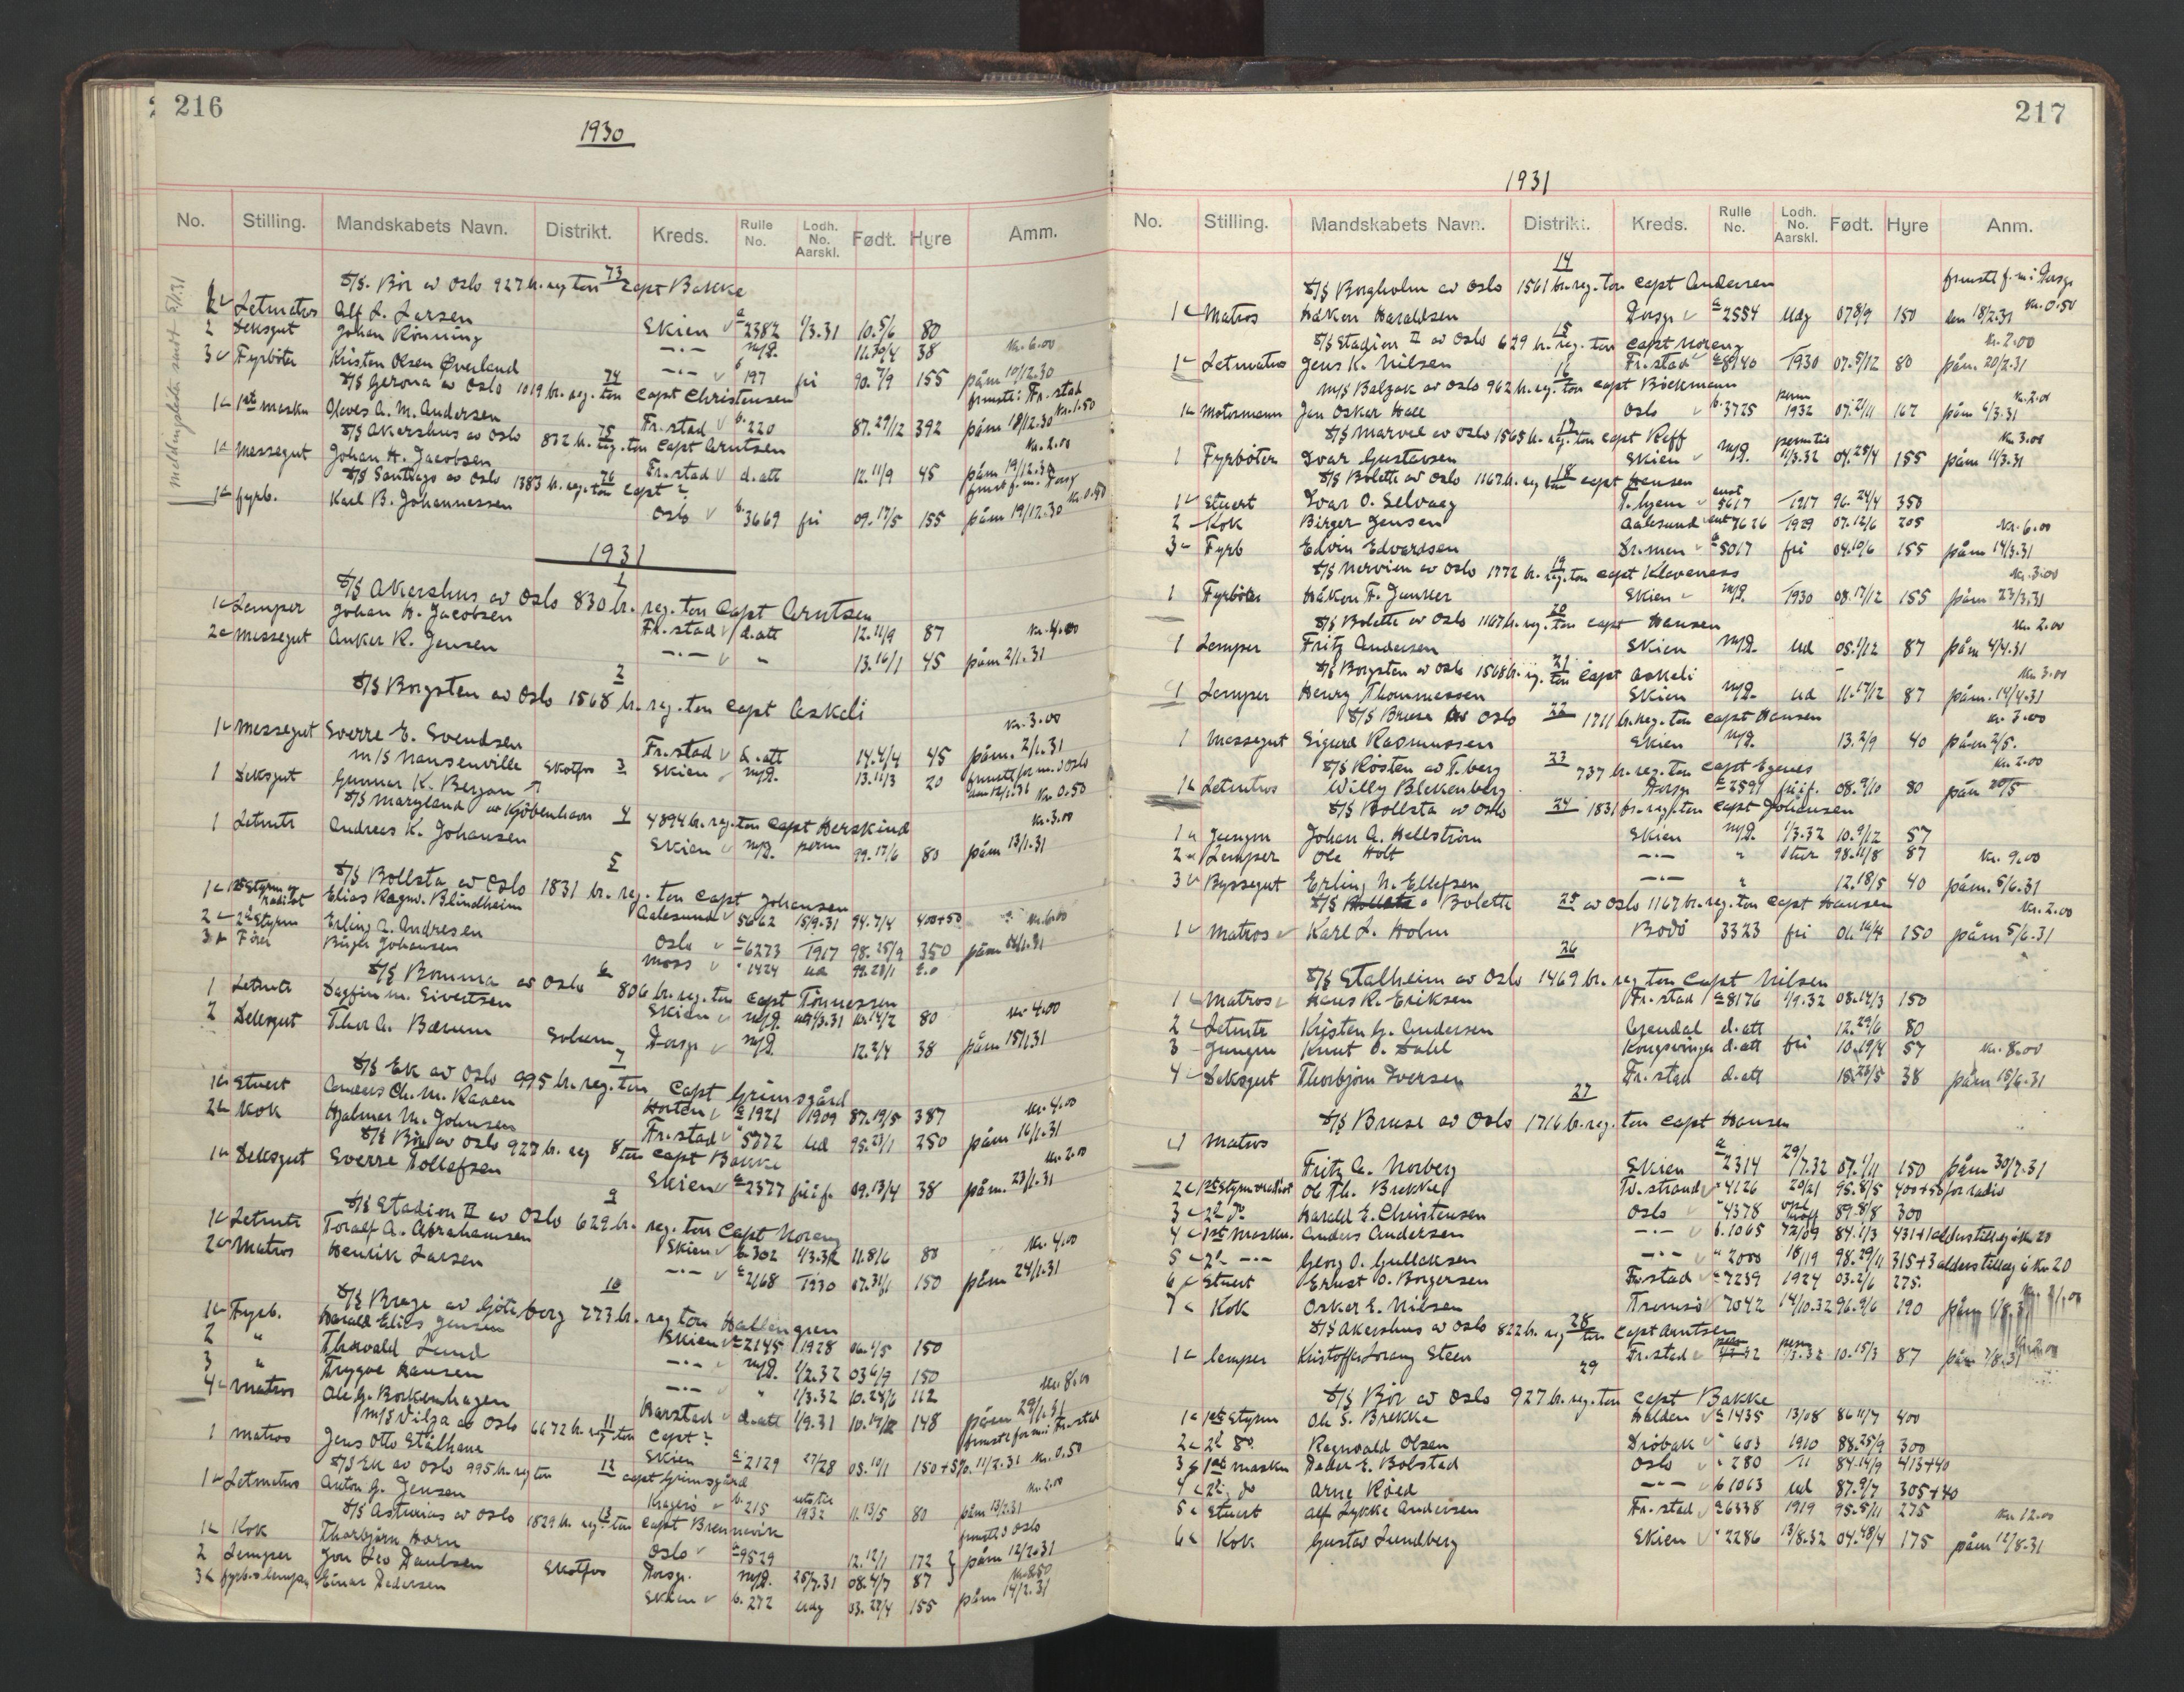 216
1930
No. Stilling. Mandskabets Navn. Distrikt. Kreds. Rulle No. Lodh. No. Aarskl. Født. Hyre Amm.
73
S/S. Bör av Oslo 927 br. reg ton Capt Bakke
Letmatros Alf L. Larsen Skien 2382 1/3.31 10.5/6 80
2 Deksgut Johan Rönning -"- m/p. 11.30/4 38 Kr. 6.00
3 Fyrböter Kristen Olsen Överland -"- 197 fri 90.7/9 155 påm 10/12.30
74
S/S Gerona av Oslo 1019 br. reg. ton Capt Christensen
1 1ste maskn Olaves A. M. Andersen Fr. stad 220 87.29/12 392 påm 18/12.30 Kr. 1.50
75
S/S Akershus av Oslo 832 br. reg. ton Capt Arntsen
1 Messegut Johan H. Jacobsen Fr. stad d. att 12.11/9 45 påm 19/12.30 Kr. 2.00
76
S/S Santiago av Oslo 1383 br. reg. ton Capt ?
1 fyrb. Karl B. Johannessen Oslo 3669 fri 09.17/5 155 påm 19/12.30 Kr. 0.50
1931
1
S/S Akershus av Oslo 830 br. reg. ton Capt Arntsen
1 Lemper Johan H. Jacobsen Fr. stad d. att 12.11/9 87 Kr. 4.00
2 Messegut Anker R. Jensen -"- " 13.16/1 45 påm 2/1.31
2
S/S Borgsten av Oslo 1568 br. reg. ton Capt Askeli
1 Messegut Sverre E. Svendsen Fr. stad d. att 14.4/4 45 påm. 2/1.31 Kr. 3.00
M/S Hansenville Skotfos 3
1 Deksgut Gunnar K. Bergan Skien m/p. 13.11/3 20 Kr 0.50
S/S Maryland av Kjöbenhavn 4 4894 br. reg. ton Capt Herskind
1 Letmtr Andreas K. Johansen Skien m/p. perm 99.17/6 80 påm 13/1.31 Kr. 3.00
5
S/S Bollsta av Oslo 1831 br. reg. ton Capt Johansen
1 1ste Styrm og radiot Elias Ragnv. Blindheim Aalesund 5662 15/9.31 94.7/4 400+50 Kr. 6.00
2 2d Styrm Erling A. Andresen Oslo 6273 T917 98.25/9 350 påm 14/1.31
3 Börge Johansen Moss 1424 99.23/1
6
S/S Bomma av Oslo 806 br. reg. ton Capt Tönnessen
1 Letmtr Dagfin M. Sivertsen Skien m/p. 80 Kr 4.00
2 Deksgut Thor A. Bærum Solum Porsgr m/p. 12.2/4 38 påm 15/1.31
7
S/S Ek av Oslo 995 br. reg. ton Capt Grimsgård
1 Stuert Anders Ch. M. Raaen Horten 1921 1909 87.19/5 387 Kr. 4.00
2 Kok Hjalmar M. Johnsen Fr. stad 5772 Ud 95.23/1 250 påm 16/1.31
S/S Bör av Oslo 927 br. reg 8 ton Capt Bakke
1 Deksgut Sverre Tollefsen Skien 2377 09.13/4 38 påm. 23/1.31 Kr. 2.00
9
S/S Stadion II av Oslo 629 br. reg. ton Capt Noreng
1 Letmtr Toralf A. Abrahamsen Skien 302 1/3.32 11.8/6 80 Kr. 4.00
2 Matros Henrik Larsen -"- 2168 T930 07.31/1 150 påm 24/1.31
10
S/S Brage av Göteborg 773 br. reg ton Hallengren
1 Fyrb. Harald Elias Jensen Skien 2145 1928 06.1/5 150
2 " Thorvald Lund -"- m/p. 1/2.32 03.6/9 150
3 " Trygve Hansen -"- " 1/3.32 10.24/6 112 Kr. 8.00
4 Matros Ole G. Borkenhagen Harstad d. att 1/9.31 148 påm 29/1.31
M/S Vilja av Oslo 6672 br. reg. 11 ton Capt ?
1 Matros Jens Otto Stålhane Skien 2129 27/28 03.10/1 150+5% 11/2.31 Kr. 0.50
S/S Ek av Oslo 995 br. reg ton 12 Capt Grimsgård
1 Letmatros Anton G. Jensen Kragerö 215 1932 11.13/5 80 påm 13/2.31 Kr. 2.00
S/S Asturias av Oslo 1829 br. reg. 13 ton Capt Brennevik
1 Kok Thorbjörn Horn Oslo 9529 12.12/1 172 påm 12/2.31
2 Lemper Jon Leo Paulsen Skotfos Porsgr. m/p. 25/7.31 08.4/7 87
3 fyrb. o. lemper Einar Pedersen Skien 272 Udg 03.27/4 155 påm 14/2.31
meldingsliste sendt 5/1.31
217
1931
No. Stilling. Mandskabets Navn. Distrikt. Kreds. Rulle No. Lodh. No. Aarskl. Født. Hyre Anm.
14
S/S Borgholm av Oslo 1561 br. reg. ton Capt Andersen
1 Matros Håkon Haraldsen Porsgr 2554 Udg 07.8/9 150 den 18/2.31 Kr. 0.50
15
S/S Stadion II av Oslo 629 br. reg. ton Capt Noreng
1 Letmatros Jens K. Nilsen Fr. stad 8940 T930 07.5/12 80 påm. 20/2.31 Kr. 2.00
16
M/S Balzac av Oslo 962 br. reg. ton Capt Böckmann
1 Motormann Jan Oskar Hall Oslo 3725 1932 07.2/11 162 påm 6/3.31 Kr. 2.00
17
S/S Marvel av Oslo 1565 br. reg. ton Capt Reff
1 Fyrböter Ivar Gustavsen Skien m/p. 11/3.32 04.25/4 155 påm 11/3.31 Kr 3.00
18
S/S Bolette av Oslo 1167 br. reg ton Capt Hansen
1 Stuert Ivar O. Selvaag T. hjem 5617 T917 96.24/4 350
2 Kok Birger Jensen Aalesund 7626 T929 07.12/6 205 Kr. 6.00
3 Fyrb Edvin Edvardsen Dr. men 5017 fri 04.10/6 155 påm 14/3.31
19
S/S Norvien av Oslo 1772 br. reg. ton Capt Klaveness
1 Fyrböter Håkon F. Junker Skien m/p. T930 08.17/12 155 påm. 23/3.31 Kr. 3.00
20
S/S Bolette av Oslo 1167 br. reg. ton Capt Hansen
1 Lemper Fritz Andersen Skien m/p. Ud 05.1/12 87 påm 4/4.31 Kr. 2.00
21
S/S Borgsten av Oslo 1568 br. reg. ton Capt Askeli
1 Lemper Henry Thommessen Skien m/p. Ud 11.17/12 87 påm. 14/4.31 Kr. 3.00
S/S Bruse av Oslo 22 1711 br. reg. ton Capt Hansen
1 Messegut Sigurd Rasmussen Skien m/p. 13.2/9 40 påm 2/5. Kr. 3.00
S/S Rösten av T. berg 23 737 br. reg. ton Capt Egenes
1 Letmtros Willy Blekenberg Porsgr 2591 08.9/10 80 påm 20/5 Kr. 2.00
S/S Bollsta av Oslo 24 1831 br. reg. ton Capt Johansen
1 Jungm Johan A. Hellström Skien m/p. 1/3.32 10.9/12 57
2 Lemper Ole Holt -"- " 98.11/8 87 Kr. 9.00
3 Byssegut Erling N. Ellefsen -"- " 12.18/5 40 påm. 5/6.31
S/S Bolette 25 av Oslo 1167 br. reg. ton Capt Hansen
1 Matros Karl L. Holm Bodö 3323 fri 01.16/4 150 påm 5/6.31 Kr. 2.00
26
S/S Stalheim av Oslo 1469 br. reg ton Capt Nilsen
1 Matros Hans R. Eriksen Fr. stad 8176 1/9.32 08.14/3 150
2 Letmtr Kristen G. Andersen Arendal d. att 12.29/6 80
3 Jungm Knut O. Dahl Kongsvinger d. att fri 10.19/4 57 Kr. 8.00
4 Deksgut Thorbjörn Iversen Fr. stad d. att 15.23/5 38 påm 15/6.31
27
S/S Bruse av Oslo 1716 br. reg. ton Capt Hansen
1 Matros Fritz A. Norberg Skien 2314 29/7.32 07.1/11 150 påm 30/7.31
2 1ste Styrm o radiot Ol Th. Brekke Tv. strand 4126 20/21 95.8/5 400+50 for radio
3 2d Do Harald E. Christensen Oslo 4378 89.8/8 300
4 1ste Maskn. Anders Andersen -"- 1065 72/09 84.1/3 431+1 alderstilleg á kr. 20
5 2d -"- Georg O. Gullaksen -"- 2000 18/19 98.29/11 315+3 alderstilleg á Kr. 20
6 Stuert Ernst O. Borgersen Fr. stad 7239 1924 03.2/6 275.
7 Kok Oskar E. Nilsen Tromsö 7042 14/10.32 96.9/6 190
28
S/S Akershus av Oslo 822 br. reg ton Capt Arntsen
1 lemper Kristoffer Lorang Steen Fr. stad 1/3.32 10.15/3 87 påm 7/8.31
29
S/S Bör av Oslo 927 br. reg. ton Capt Bakke
1 1ste Styrm Ole S. Brekke Halden 1435 13/08 86.11/7 400
2 2d Do. Ragnvald Olsen Dröbak 603 1910 88.25/9 300
3 1ste maskn Peder E. Bolstad Oslo 280 11 84.14/9 413+40
4 2d do Arne Röed -"- 1063 Ud 87.9/7 305+40
5 Stuert Alf Lykke Andersen Fr. stad 6338 1919 95.5/11 275 Kr. 12.00
6 Kok Gustav Lundberg Skien 2286 13/8.32 04.28/4 175 påm 12/8.31